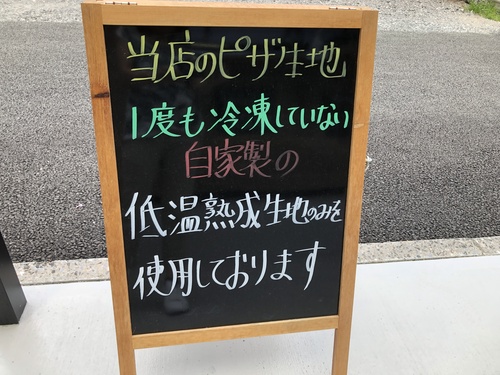 当店のピザ生地
1度も冷凍していない
自家製の
低温熟成生地のみを
使用しております